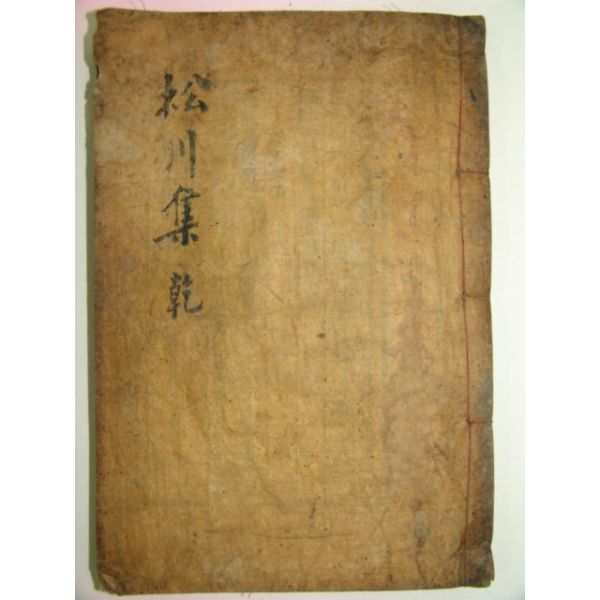 松川集 乾